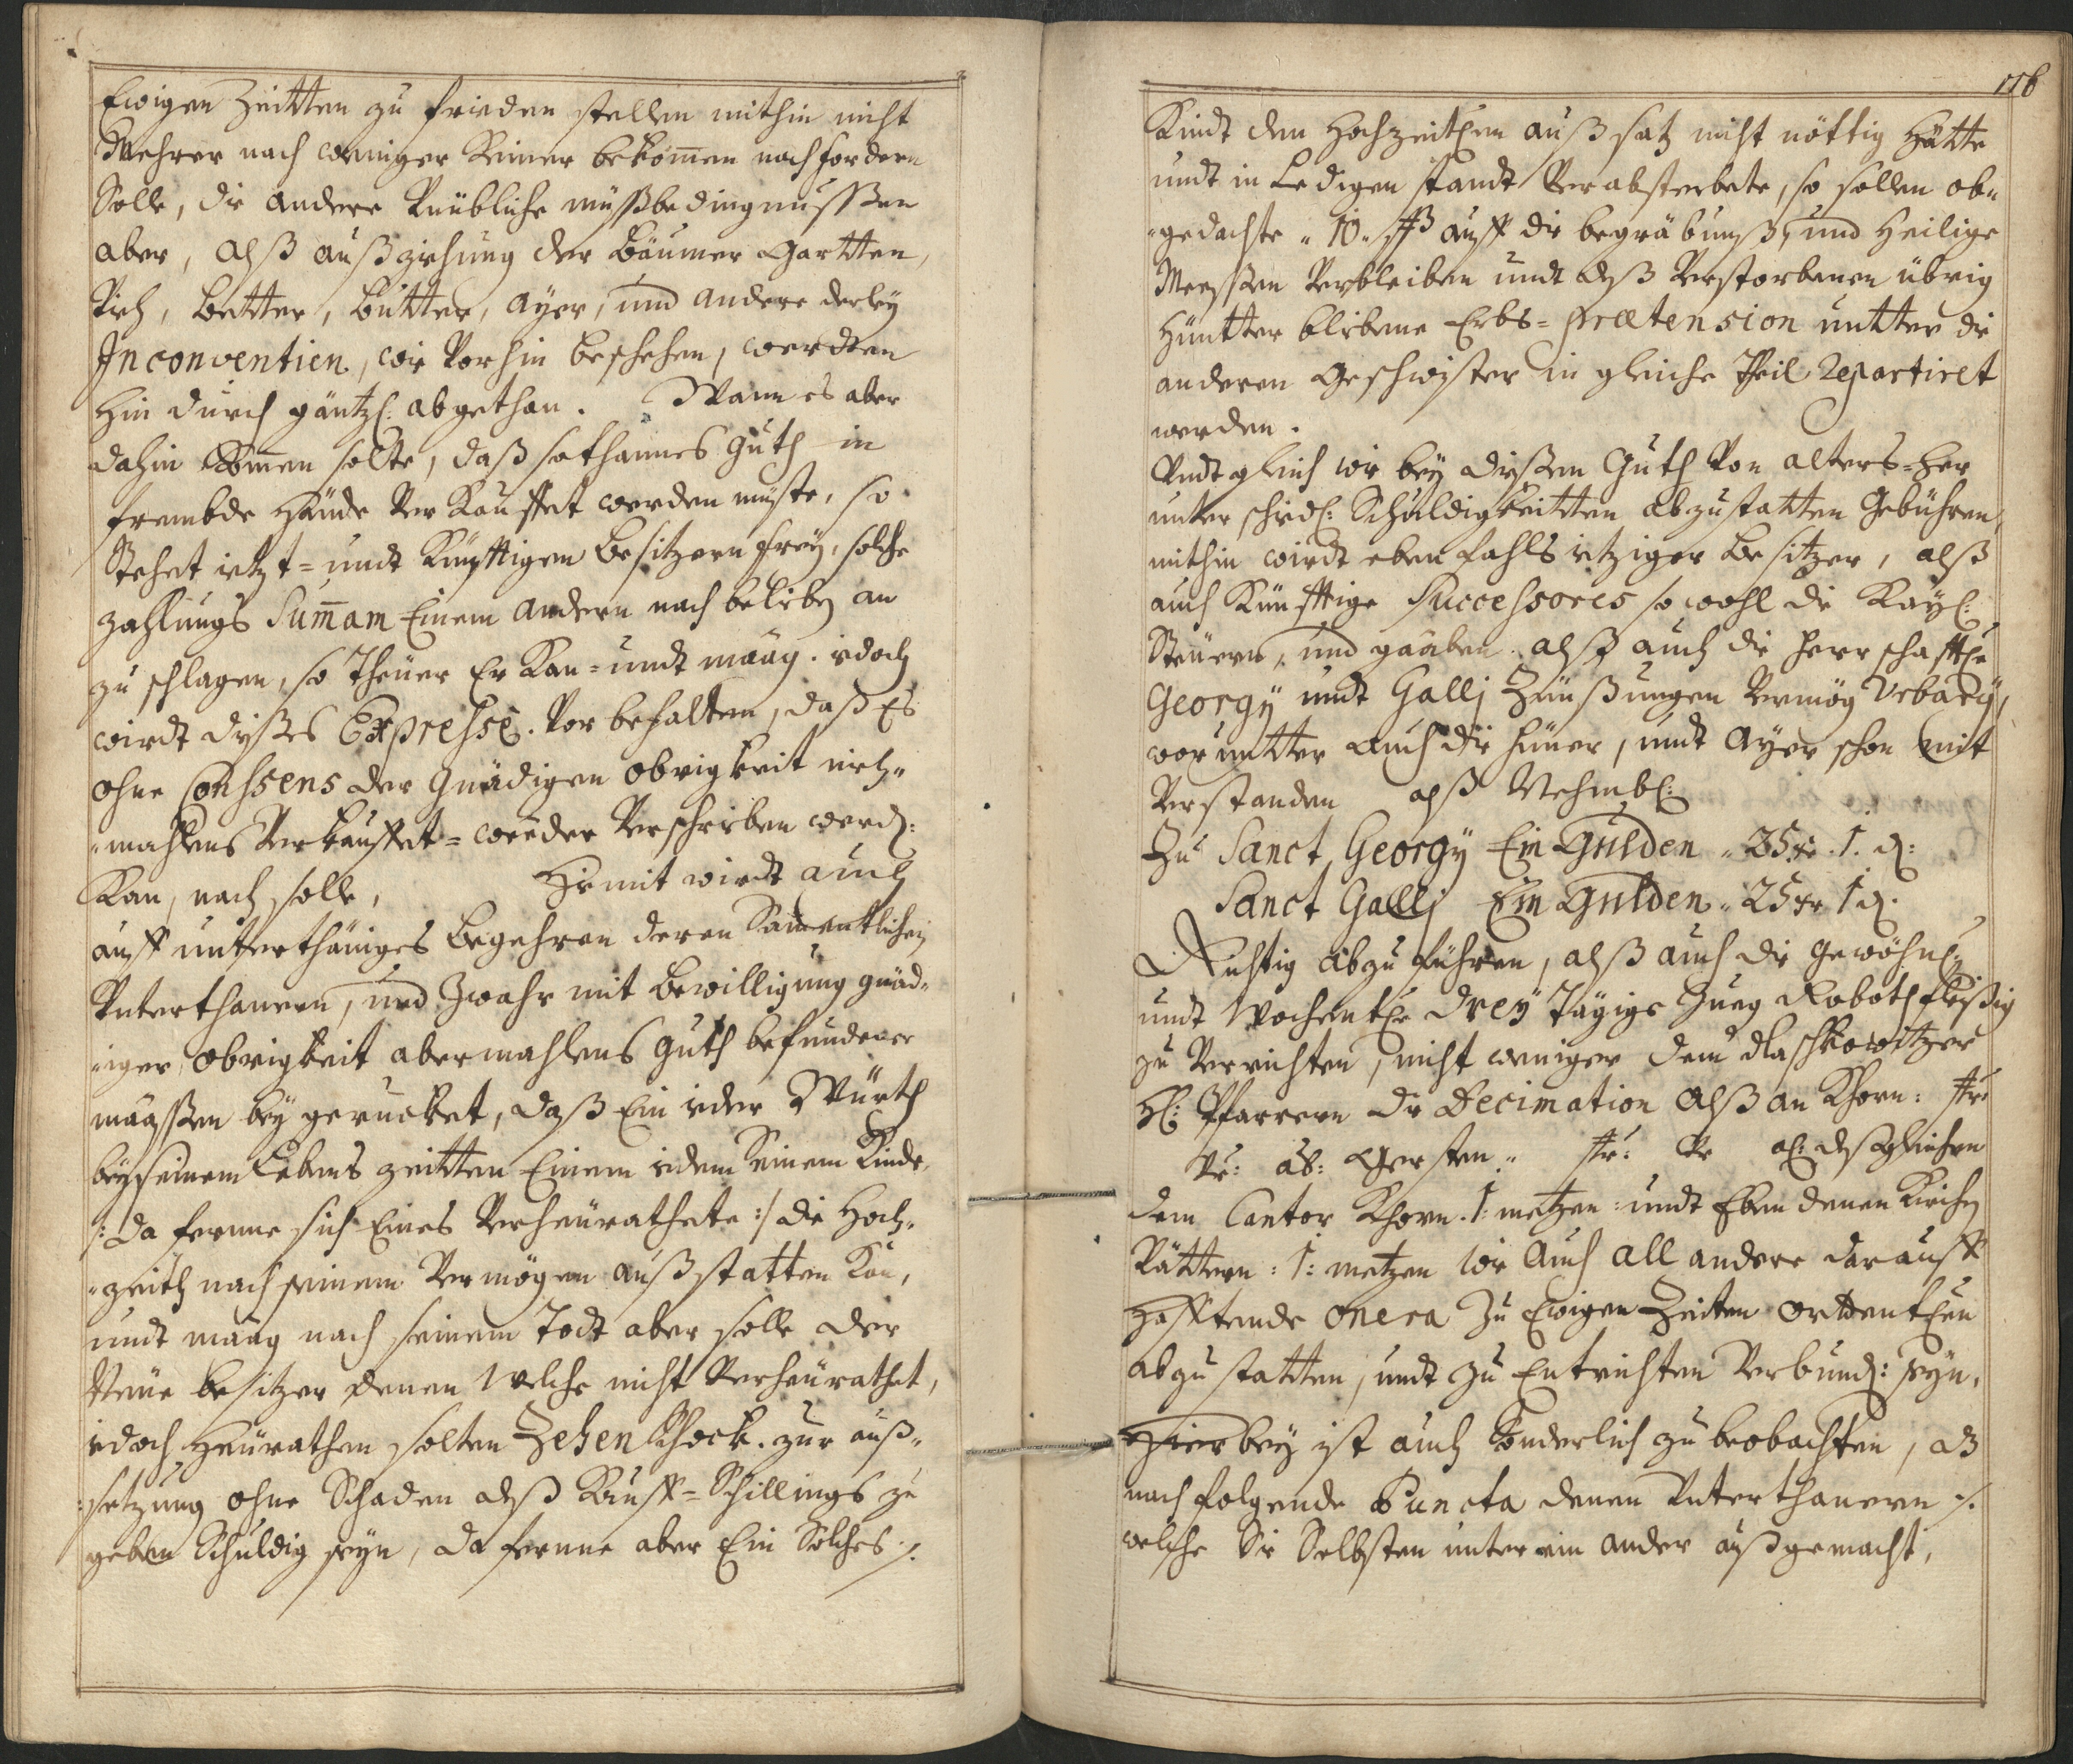 Ewigen Zeitten zu frieden stellen mithin nicht
Mehrer noch weniger Keiner bekom̅en noch fordern
Solle, die andere Leübliche müssbedingnussßen
aber, alß außzihung der Bäumer Gartten,
Vieh, Better, Butter, Ayer, und andere derley
Inconventien, wie Vorhin beschehen, werdten
hin durch gäntzl: abgethan. Wann es aber
dahin kom̅en solte, daß sothannes Guth in
frembde Hände Verkauffet werden müste, so
Stehet ietzt= undt Künfftigem Besitzern freÿ, solche
zahlungs Sum̅am Einem andern nach belieben an
zu schlagen, so Theuer Er Kan= undt maag. iedoch
wirdt dißes Expressè. Vor behalten, daß Es
ohne Conssens der Gnädigen obrigkeit nieh„
„mahlens Verkauffet= weeder Verschrieben werd:
Kan, noch solle, Hiemit wirdt auch
auff unterthäniges Begehren deren Sam̅entlichen
Unterthanern, und Zwahr mit Bewilligung gnäd„
„iger obrigkeit abermahlens guth befundener
maassen bey gerucket, daß Ein ieder Würth
beÿ seinem Lebens zeitten Einem iedem Seinem Kinde,
/: da ferne sich Eines Verheurathete :/ die Hoch„
„zeith nach seinem Vermögen außstatten Kan,
undt maag nach seinem Todt aber solle der
Neüe besitzer denen Welche nicht Verheurathet,
iedoch Heurathen solten Zehen Schock. zur auß„
„setzung ohne Schaden deß Kauff=Schillings zu
geben Schuldig seÿn, da ferne aber Ein Solches ./.
176
Kindt den Hochzeitlen außsatz nicht nöttig Hätte
undt in Ledigen standt Verabsterbete, so sollen ob„
„gedachte „10„ ßß auff die begräbnuß, und Heilige
Meessen Verbleiben undt deß Verstorbenen übrig
Hüntter bliebene Erbs=prætension untter die
anderen Geschwister in gleiche Theil repartiret
werden.
Undt gleich wie beÿ dießem Guth Von alters=her
unter schidl: Schuldigkeitten abzustatten Gebühren,
mithin wirdt ebenfahls ietziger Besitzer, alß
auch Künfftige Successores so wohl die Kaÿl:
Steüern, und gaaben, alß auch die Herrschafftle
Georgÿ undt Gallj Zünßungen Vermög Vrbarÿ,
woruntter auch die Hüner, undt Ayer schon mit
Verstanden alß Nehmbl:
Zu Sanct Georgÿ Ein Gulden „ 35 xr. 1. d:
Sanct Gallj Ein Gulden „ 25 xr 1 d.
Richtig abzuführen, alß auch die gewöhnl:
undt Wochentle dreÿ Tägige Zueg Roboth fleißig
zu Verrichten, nicht weniger dem dlaschkowitzer
H: Pfarrern die Decimation alß an Khorn: str
Vr: aß: Gersten „ str: Vr aß: deßgleichen
dem Cantor Khorn. 1: metzen: undt Eben denen Kirchen
Vättern: 1: metzen wie Auch all andere darauff
Hafftende onera Zu Ewigen Zeiten ordentlen
abzustatten, undt zu Entrichten Verbund: seÿn.
Hierbeÿ ist auch Sonderlich zu beobachten, daß
nach folgende Puncta denen Unterthanern ./.
welche Sie Selbsten unter ein ander außgemacht,